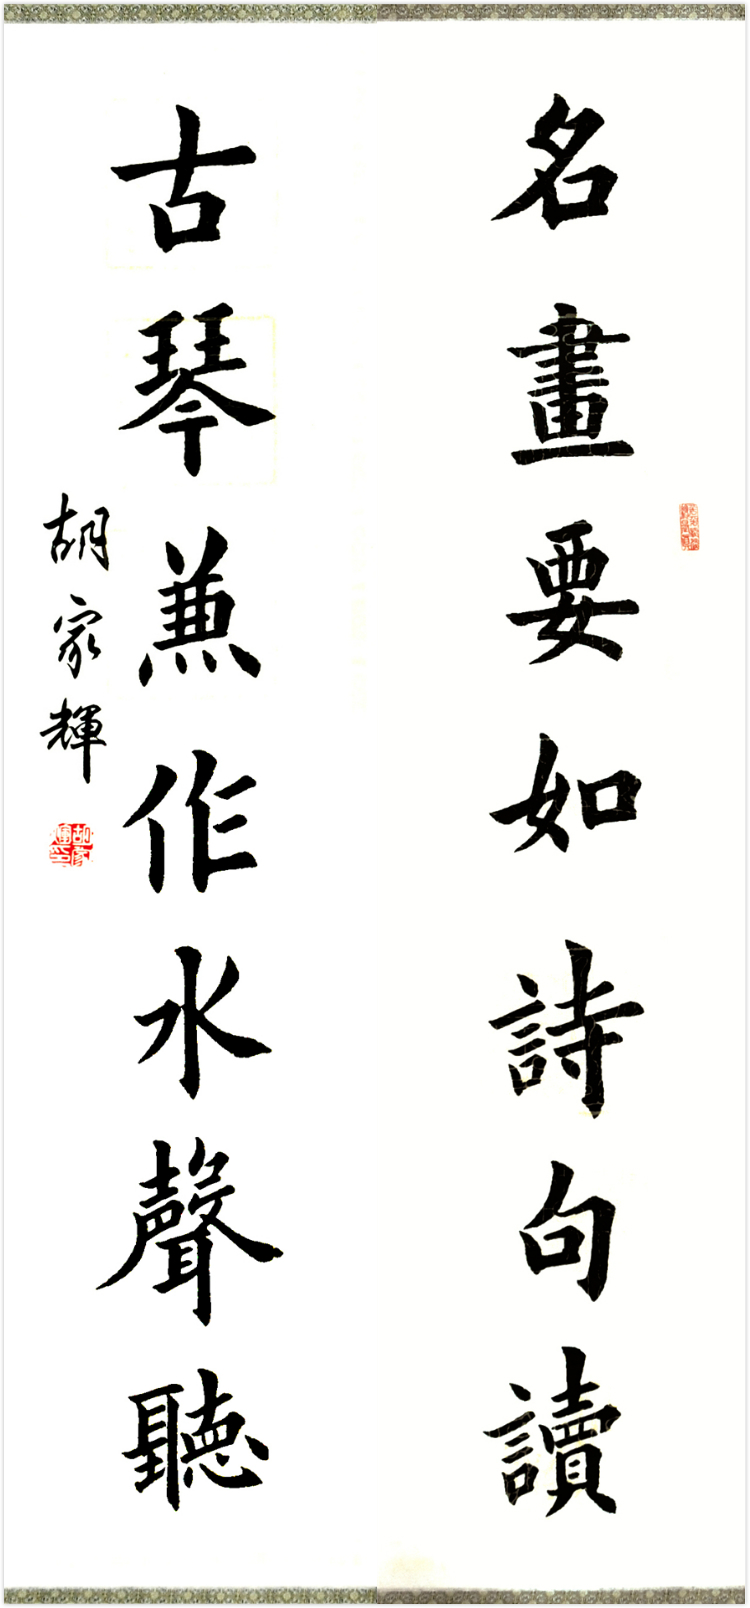 名畫要如詩句讀
古琴兼作水聲聽
胡家輝